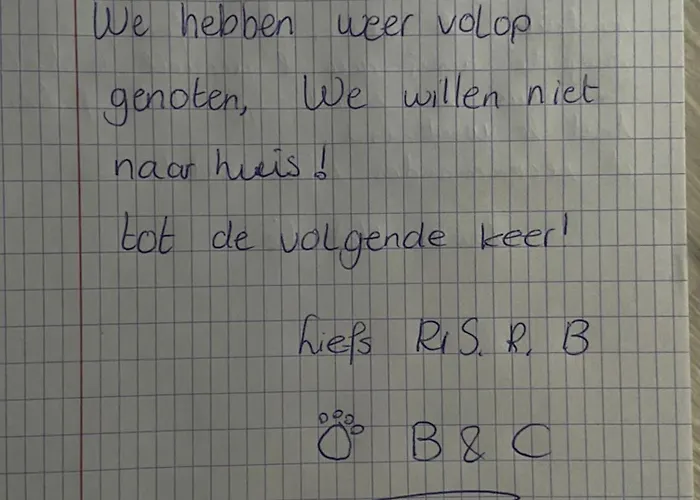 We hebben weer volop
genoten, We willen niet
naar huis!
tot de volgende keer!
liefs R, S. R. B
B & C